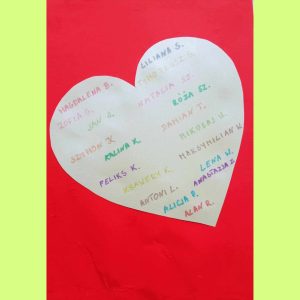 LILIANA S.
MAGDALENA B.
NATALIA SZ.
ZOFIA G.
RÓŻA SZ.
JAN G.
DAMIAN T.
SZYMON K.
MIKOŁAJ W.
KALINA K.
MAKSYMILIAN W.
FELIKS K.
LENA W.
KSAWERY K.
ANASTAZJA Z.
ANTONI L.
ALICJA P.
ALAN R.